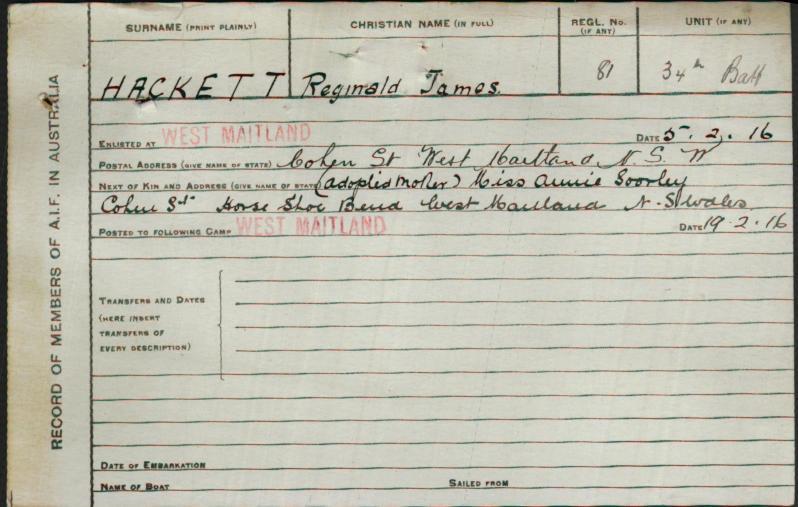 RECORD OF MEMBERS OF A.I.F. IN AUSTRALIA
SURNAME (PRINT PLAINLY) CHRISTIAN NAME (IN FULL) REGL. No. (IF ANY) UNIT (IF ANY)
HACKETT Reginald James. 81 34th Batt
ENLISTED AT WEST MAITLAND DATE 5. 2. 16
POSTAL ADDRESS (GIVE NAME OF STATE) Cohen St West Maitland N. S. W
NEXT OF KIN AND ADDRESS (GIVE NAME OF STATE) (adopted Mother) Miss Annie Soorley
Cohen St Horse Shoe Bend West Maitland N.S Wales
POSTED TO FOLLOWING CAMP WEST MAITLAND DATE 19.2.16
TRANSFERS AND DATES
(HERE INSERT
TRANSFERS OF
EVERY DESCRIPTION)
DATE OF EMBARKATION
NAME OF BOAT SAILED FROM